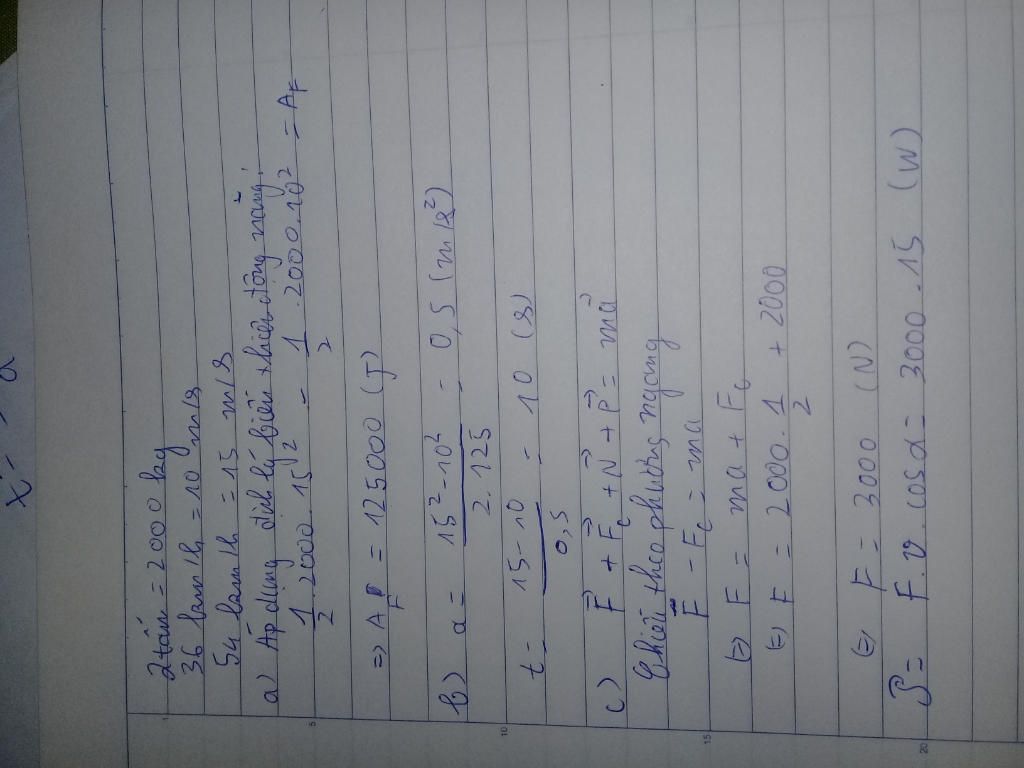 2 tấn = 2000 kg
36 km/h = 10 m/s
54 km/h = 15 m/s
a) Áp dụng định lý biến thiên động năng:
1/2 . 2000 . 15² - 1/2 . 2000 . 10² = A_F
=> A_F = 125000 (J)
b) a = (15² - 10²)/(2 . 125) = 0,5 (m/s²)
t = (15 - 10)/0,5 = 10 (s)
c) F⃗ + F⃗c + N⃗ + P⃗ = ma⃗
Chiếu theo phương ngang
F - Fc = ma
(=) F = ma + Fc
(=) F = 2000 . 1/2 + 2000
(=) F = 3000 (N)
P = F . v . cosα = 3000 . 15 (W)
5
10
15
20